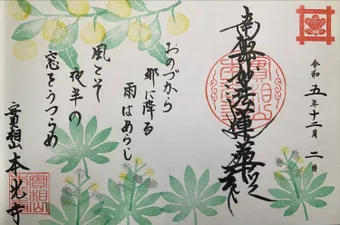 南無妙法蓮華経
令和五年十二月二日
おのづから
郷に降る
雨はあらし
風こそ
夜半の
窓をうつらめ
實相山
本光寺